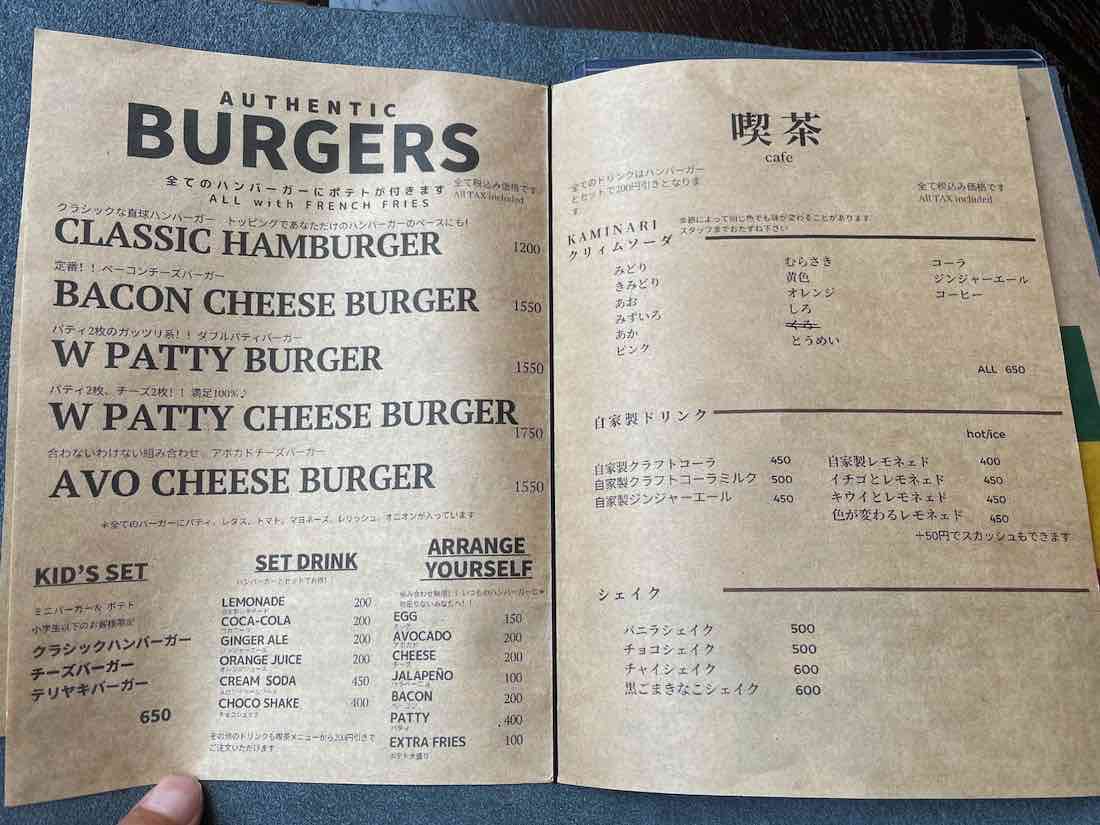 AUTHENTIC
BURGERS
全てのハンバーガーにポテトが付きます
ALL with FRENCH FRIES
全て税込み価格です
All TAX included
クラシックな直球ハンバーガー トッピングであなただけのハンバーガーのベースにも!
CLASSIC HAMBURGER 1200
定番!!ベーコンチーズバーガー
BACON CHEESE BURGER 1550
パティ2枚のガッツリ系!!ダブルパティバーガー
W PATTY BURGER 1550
パティ2枚、チーズ2枚!!満足100%♪
W PATTY CHEESE BURGER 1750
合わないわけない組み合わせ。アボカドチーズバーガー
AVO CHEESE BURGER 1550
*全てのバーガーにパティ、レタス、トマト、マヨネーズ、レリッシュ、オニオンが入っています
KID'S SET
ミニバーガー& ポテト
小学生以下のお客様限定
クラシックハンバーガー
チーズバーガー
テリヤキバーガー
650
SET DRINK
ハンバーガーとセットでお得!
LEMONADE 200
COCA-COLA 200
GINGER ALE 200
ジンジャーエール
ORANGE JUICE 200
オレンジジュース
CREAM SODA 450
CHOCO SHAKE 400
チョコシェイク
その他のドリンクも喫茶メニューから200円引きで
ご注文いただけます
ARRANGE
YOURSELF
組み合わせ無限!!いつものハンバーガーじゃ
物足りないあなたへ!!
EGG 150
AVOCADO 200
アボカド
CHEESE 200
チーズ
JALAPEÑO 100
ハラペーニョ
BACON 200
ベーコン
PATTY 400
パティ
EXTRA FRIES 100
ポテト大盛り
喫茶
cafe
全てのドリンクはハンバーガー
とセットで200円引きとなりま
す
全て税込み価格です
All TAX included
KAMINARI
クリィムソーダ
季節によって同じ色でも味が変わることがあります
スタッフまでおたずね下さい
みどり
きみどり
あお
みずいろ
あか
ピンク
むらさき
黄色
オレンジ
しろ
くろ
とうめい
コーラ
ジンジャーエール
コーヒー
ALL 650
自家製ドリンク
hot/ice
自家製クラフトコーラ 450
自家製クラフトコーラミルク 500
自家製ジンジャーエール 450
自家製レモネェド 400
イチゴとレモネェド 450
キウイとレモネェド 450
色が変わるレモネェド 450
+50円でスカッシュもできます
シェイク
バニラシェイク 500
チョコシェイク 500
チャイシェイク 600
黒ごまきなこシェイク 600